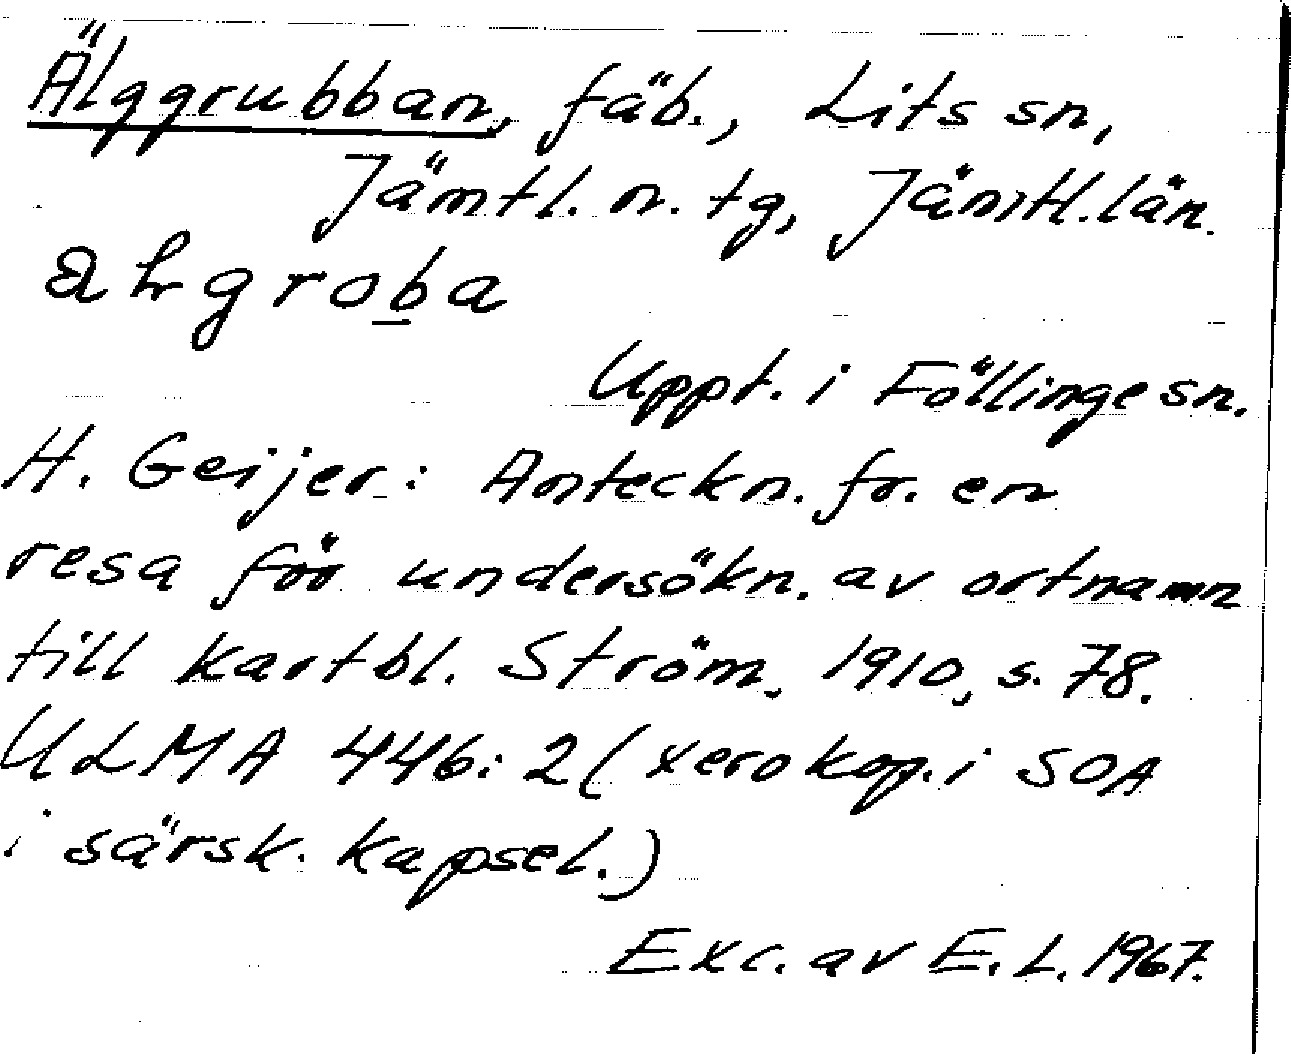 Älggrubban, fäb., Lits sn,
Jämtl. n. tg, Jämtl. län.
groba
Uppt. i Föllinge sn.
H. Geijer: Anteckn. fr. en
resa för undersökn. av ortnamn
till kartbl. Ström, 1910, s. 78.
ULMA 446:2 (xerokop. i SOA
i särsk. kapsel.)
Exc. av E. L. 1967.